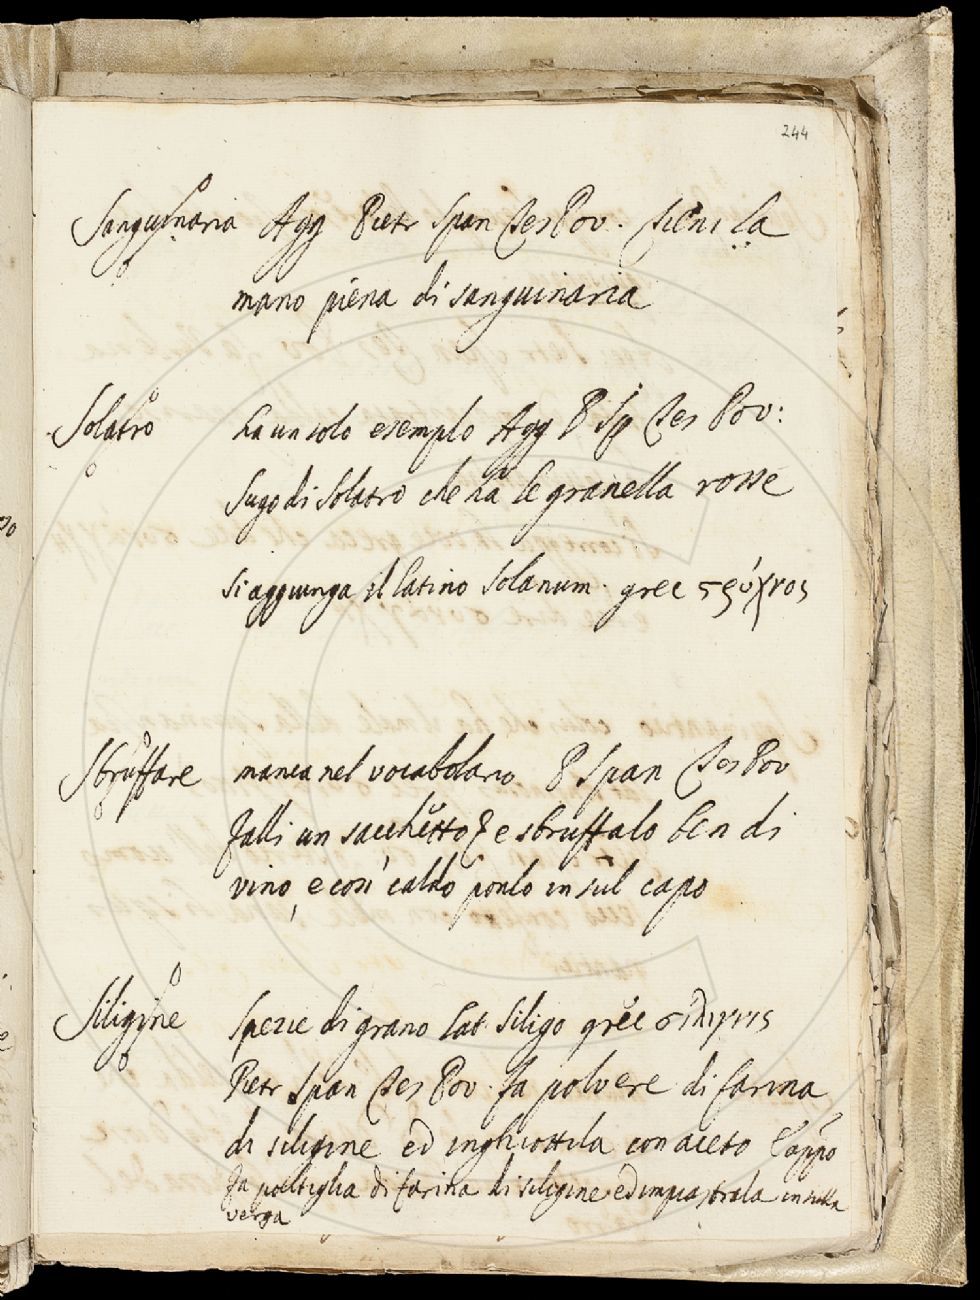 244
Sanguinaria Agg Pietr Span Tes Pov. tieni la
mano piena di sanguinaria
Solatro ha un solo esempio Agg P Sp Tes Pov:
Sugo di Solatro che ha le granella rosse
Si aggiunga il latino Solanum. grec
Sbruffare manca nel vocabolario P Span Tes Pov
falli un sacchetto e sbruffalo ben di
vino, e così caldo ponlo in sul capo
Siligine Spezie di grano lat. Siligo grec σίλιγνις
Pietr Span Tes Pov. fa polvere di farina
di siligine ed inghiottila con aceto E appo
fa poltiglia di farina di siligine ed impiastrala in sulla
verga